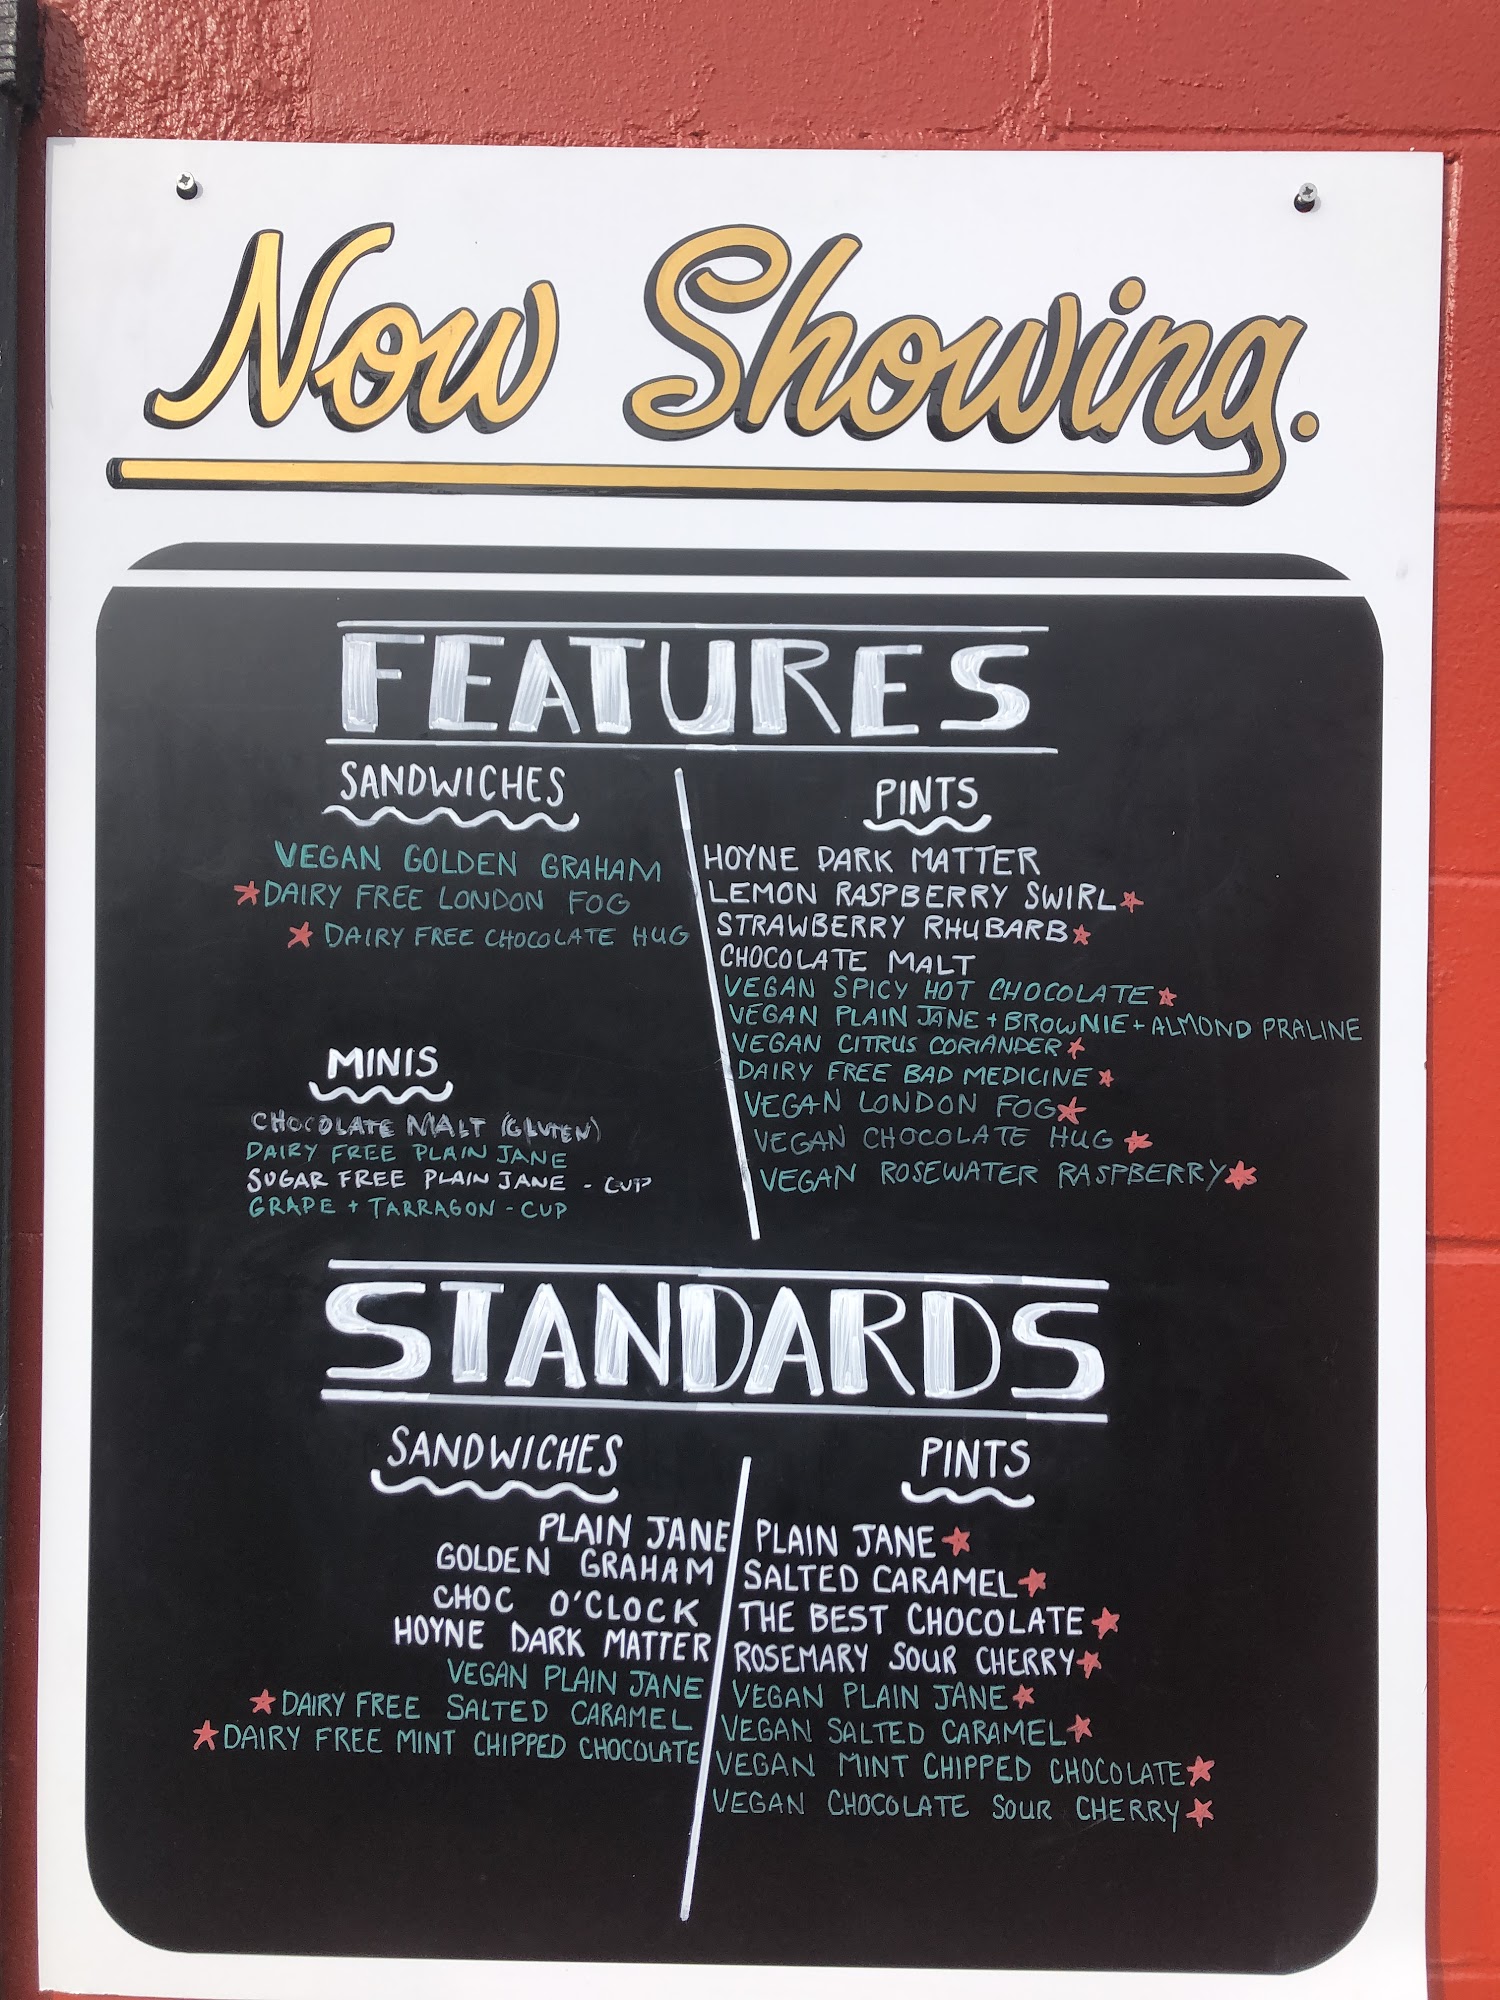 Now Showing.
FEATURES
SANDWICHES
VEGAN GOLDEN GRAHAM
DAIRY FREE LONDON FOG
DAIRY FREE CHOCOLATE HUG
MINIS
CHOCOLATE MALT (GLUTEN)
DAIRY FREE PLAIN JANE
SUGAR FREE PLAIN JANE - CUP
GRAPE + TARRAGON - CUP
PINTS
HOYNE DARK MATTER
LEMON RASPBERRY SWIRL
STRAWBERRY RHUBARB
CHOCOLATE MALT
VEGAN SPICY HOT CHOCOLATE
VEGAN PLAIN JANE + BROWNIE + ALMOND PRALINE
VEGAN CITRUS CORIANDER
DAIRY FREE BAD MEDICINE
VEGAN LONDON FOG
VEGAN CHOCOLATE HUG
VEGAN ROSEWATER RASPBERRY
STANDARDS
SANDWICHES
PLAIN JANE
GOLDEN GRAHAM
CHOC O'CLOCK
HOYNE DARK MATTER
VEGAN PLAIN JANE
DAIRY FREE SALTED CARAMEL
DAIRY FREE MINT CHIPPED CHOCOLATE
PINTS
PLAIN JANE
SALTED CARAMEL
THE BEST CHOCOLATE
ROSEMARY SOUR CHERRY
VEGAN PLAIN JANE
VEGAN SALTED CARAMEL
VEGAN MINT CHIPPED CHOCOLATE
VEGAN CHOCOLATE SOUR CHERRY